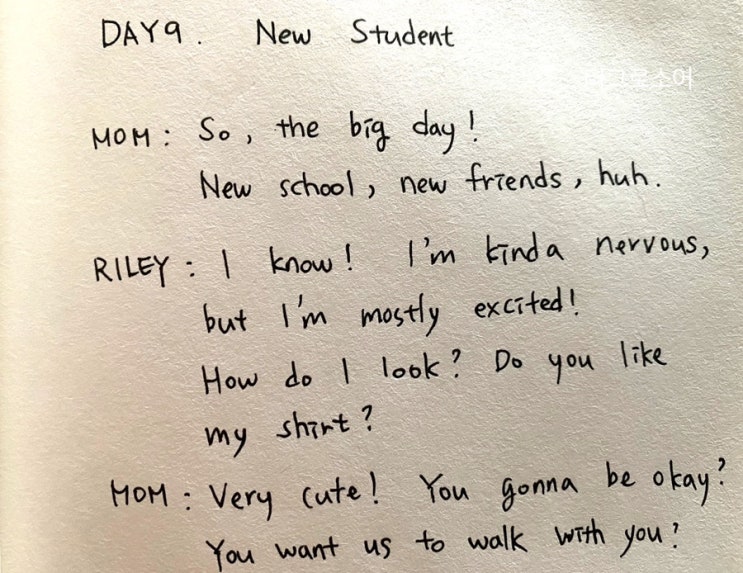 DAY9. New Student
MOM: So, the big day!
New school, new friends, huh.
RILEY: I know! I'm kinda nervous,
but I'm mostly excited!
How do I look? Do you like
my shirt?
MOM: Very cute! You gonna be okay?
You want us to walk with you?